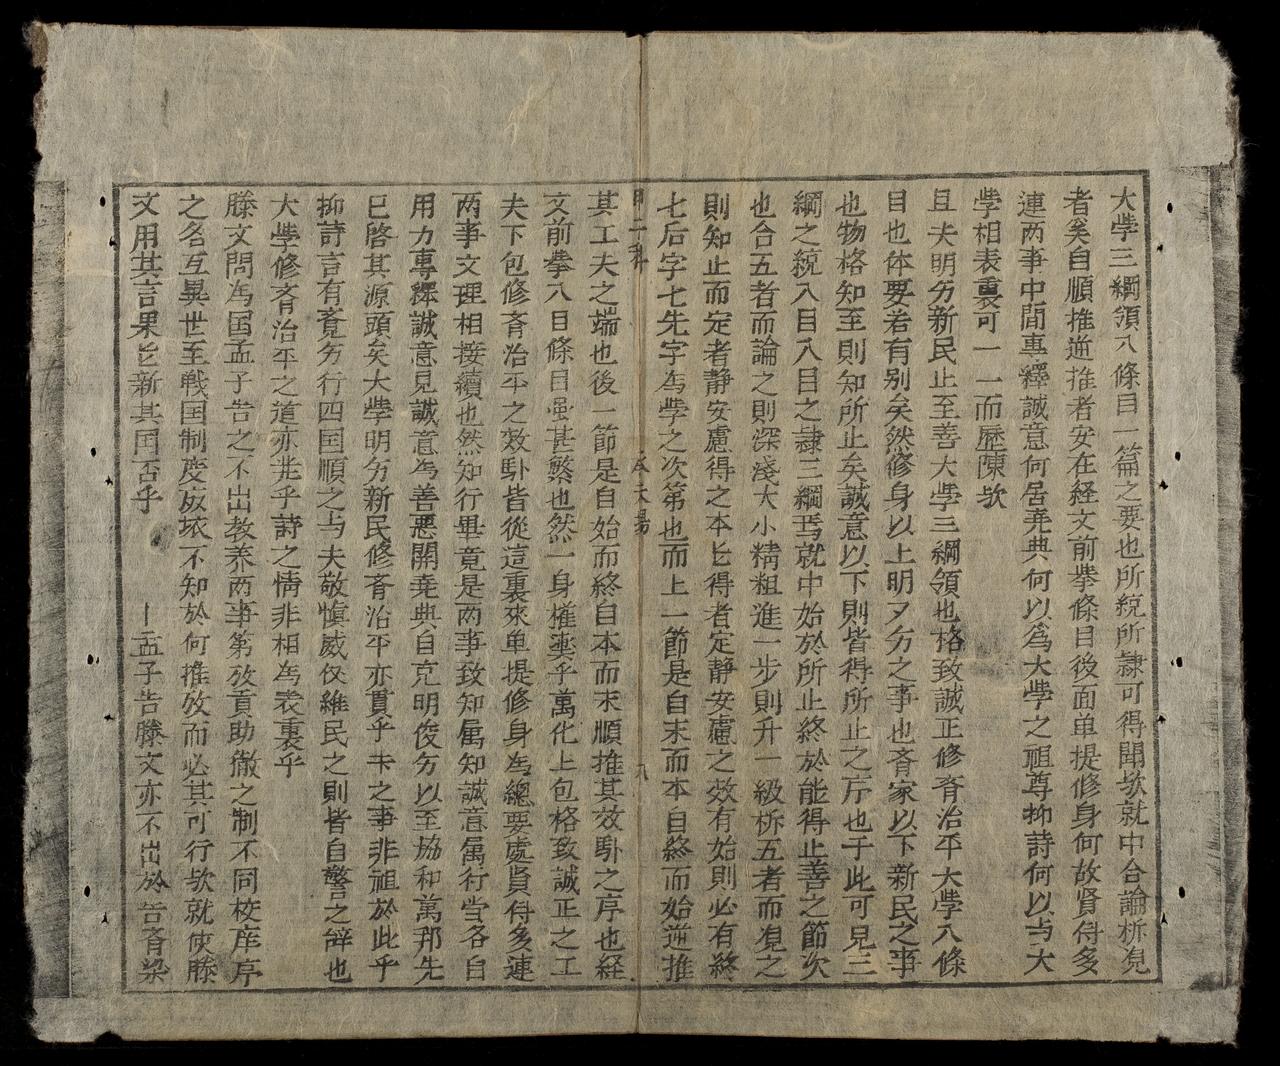 大學三綱領八條目一篇之要也所統所隷可得聞欤就中合論析覌
者奚自順推逆推者安在経文前挙條目後面单提修身何故賢傳多
連両事中間專釋誠意何居尭典何以為大學之祖尊抑詩何以与大
學相表裏可一一而歷陳欤
且夫明徳新民止至善大學三綱領也格致誠正修斉治平大學八條
目也体要若有别矣然修身以上明之事也斉家以下新民之事
也物格知至則知所止矣誠意以下則皆得所止之序也于此可見三
綱之統八目八目之隷三綱焉就中始於所止終於能得止善之節次
也合五者而論之則深淺大小精粗進一步則升一級析五者而覌之
則知止而定者静安慮得之本能得者定静安慮之效有始則必有終
七后字七先字為學之次第也而上一節是自末而本自終而始逆推
甲二科 文場 九
其工夫之端也後一節是自始而終自本而末順推其效騐之序也経
文前挙八目條目虽甚繁也然一身權輿乎萬化上包格致誠正之工
夫下包修斉治平之效騐皆從這裏來单提修身為總要處賢傳多連
両事文理相接續也然知行畢竟是両事致知属知誠意属行当各自
用力專釋誠意見誠意為善惡關尭典自克明俊徳以至協和萬邦先
已啓其源頭矣大學明徳新民修斉治平亦貫乎之事非祖於此乎
抑詩言有覺徳行四国順之与夫敬慎威仪維民之則皆自警之辞也
大學修斉治平之道亦兆乎詩之情非相為表裏乎
滕文問為国孟子告之不出教养両事第攷貢助徹之制不同校庠序
之名互異世至戦国制度废壊不知於何推攷而必其可行欤就使滕
文用其言果能新其国否乎 孟子告滕文亦不出於告斉梁